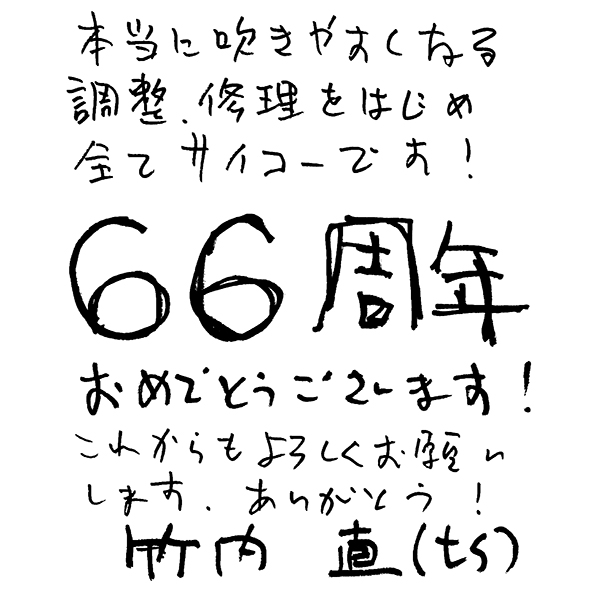 本当に吹きやすくなる
調整、修理をはじめ
全てサイコーです!
66周年
おめでとうございます!
これからもよろしくお願い
します、ありがとう!
竹内 直(ts)